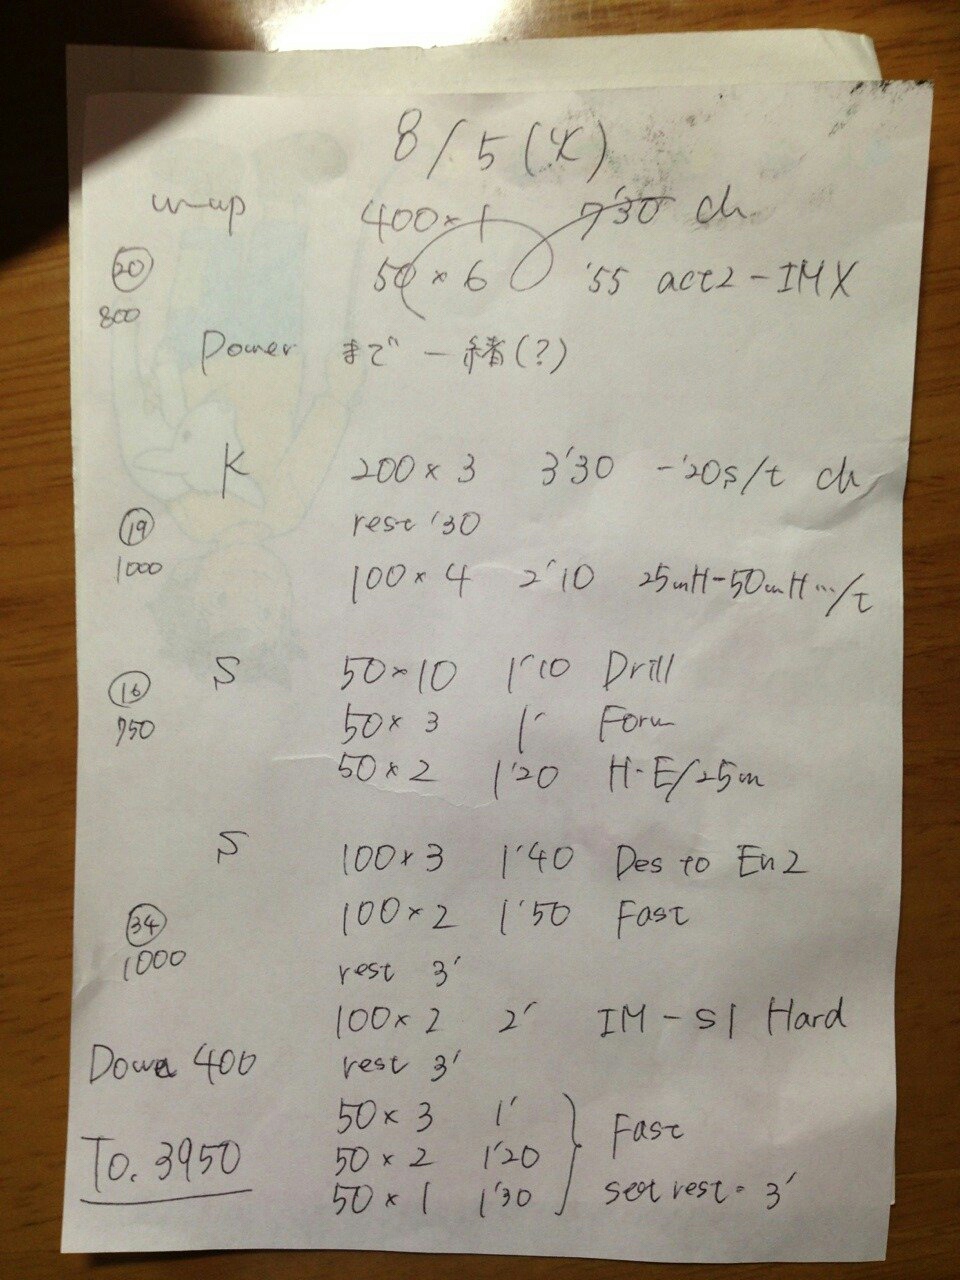 8/5(火)
w-up 400×1 7'30 ch
⑳ 50×6 '55 act2-IMX
800
Power まで一緒(?)
K 200×3 3'30 -'20s/t ch
⑲ rest '30
1000 100×4 2'10 25mH-50mH…/t
S 50×10 1'10 Drill
⑯ 50×3 1' Form
750 50×2 1'20 H-E/25m
S 100×3 1'40 Des to En2
㉞ 100×2 1'50 Fast
1000 rest 3'
100×2 2' IM-S1 Hard
Down 400 rest 3'
50×3 1' Fast
To. 3950 50×2 1'20
50×1 1'30 set rest 3'